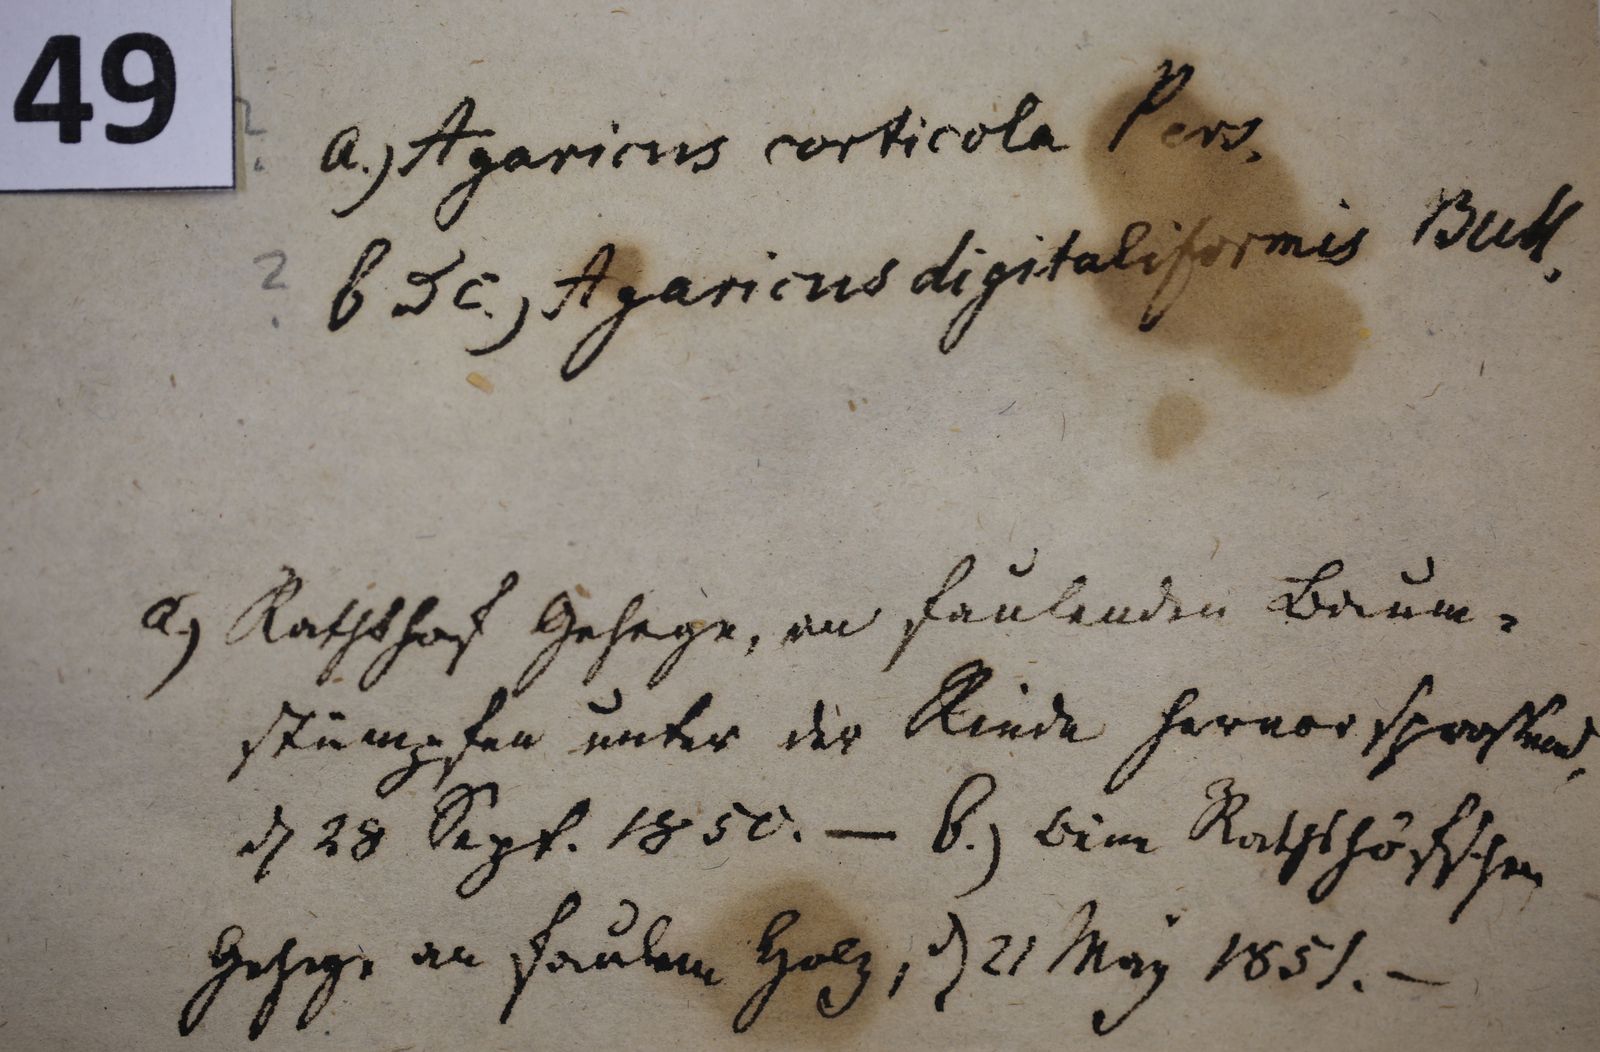 49
?
a.) Agaricus corticola Pers.
? b & c.) Agaricus digitaliformis Bull.
a.) Rathshof Gehege, an faulenden Baum-
stümpfen unter der Rinde hervorsprossend,
d 28 Sept. 1850. — b.) beim Rathshöfschen
Gehege an faulem Holz, d 21 May 1851. —